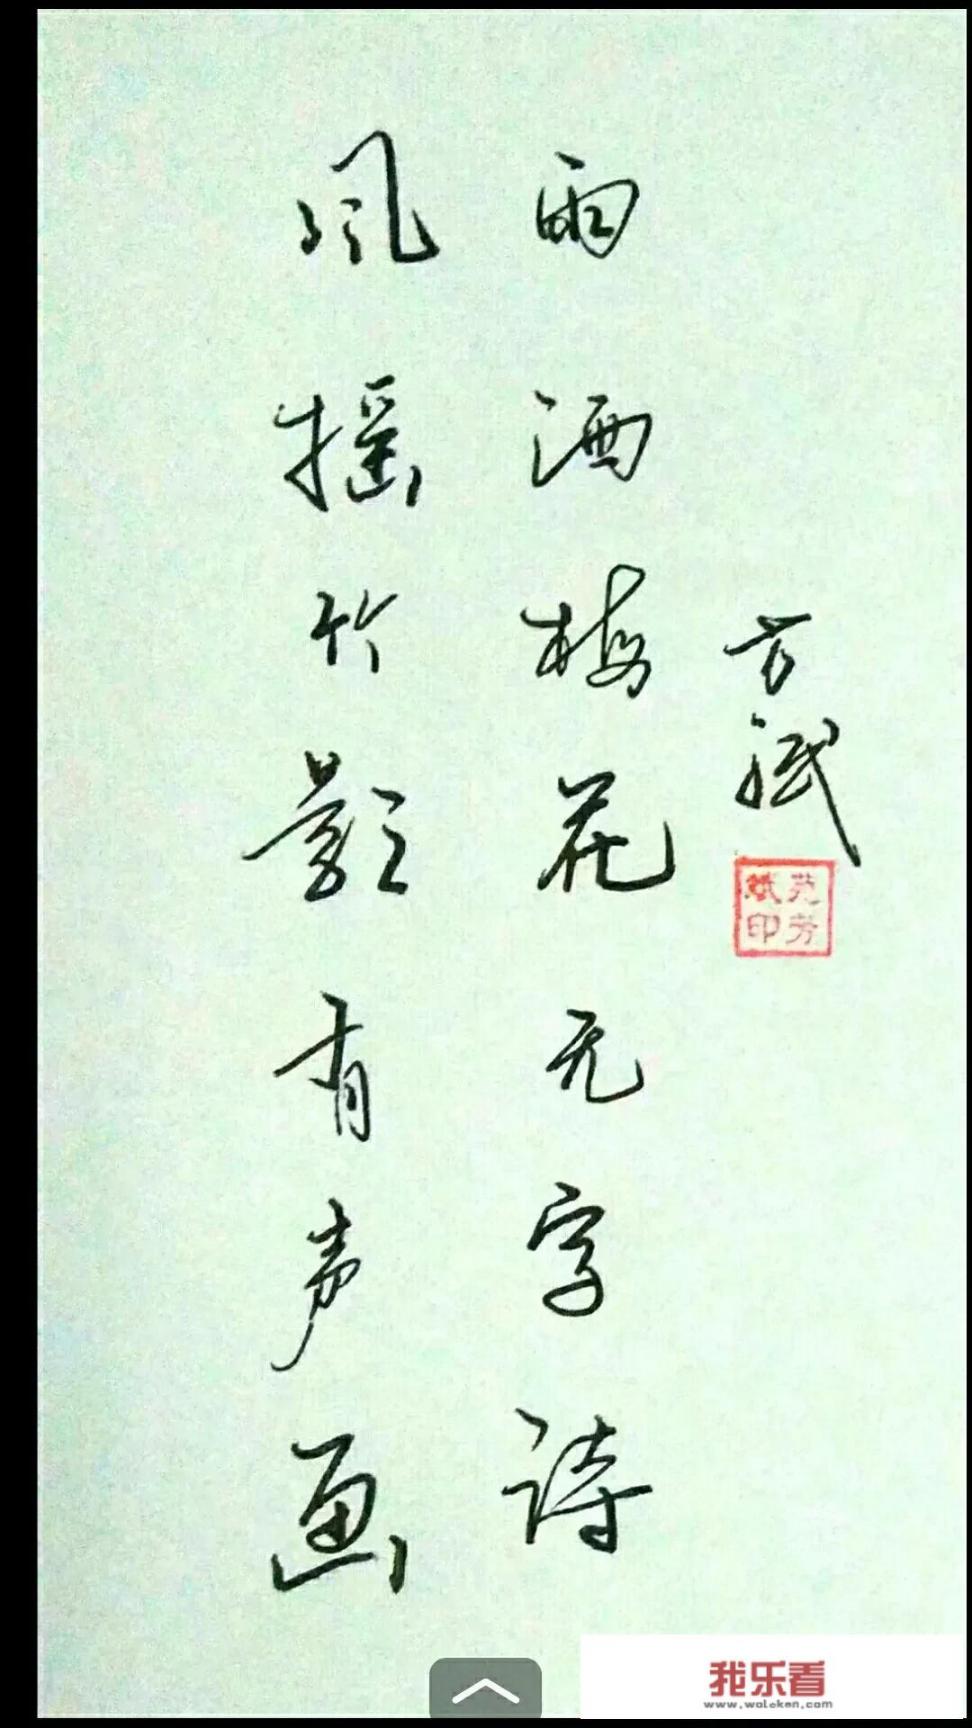 风摇竹影有声画
雨洒梅花无字诗
芳斌
苑芳
斌印
我乐看
www.woleken.com